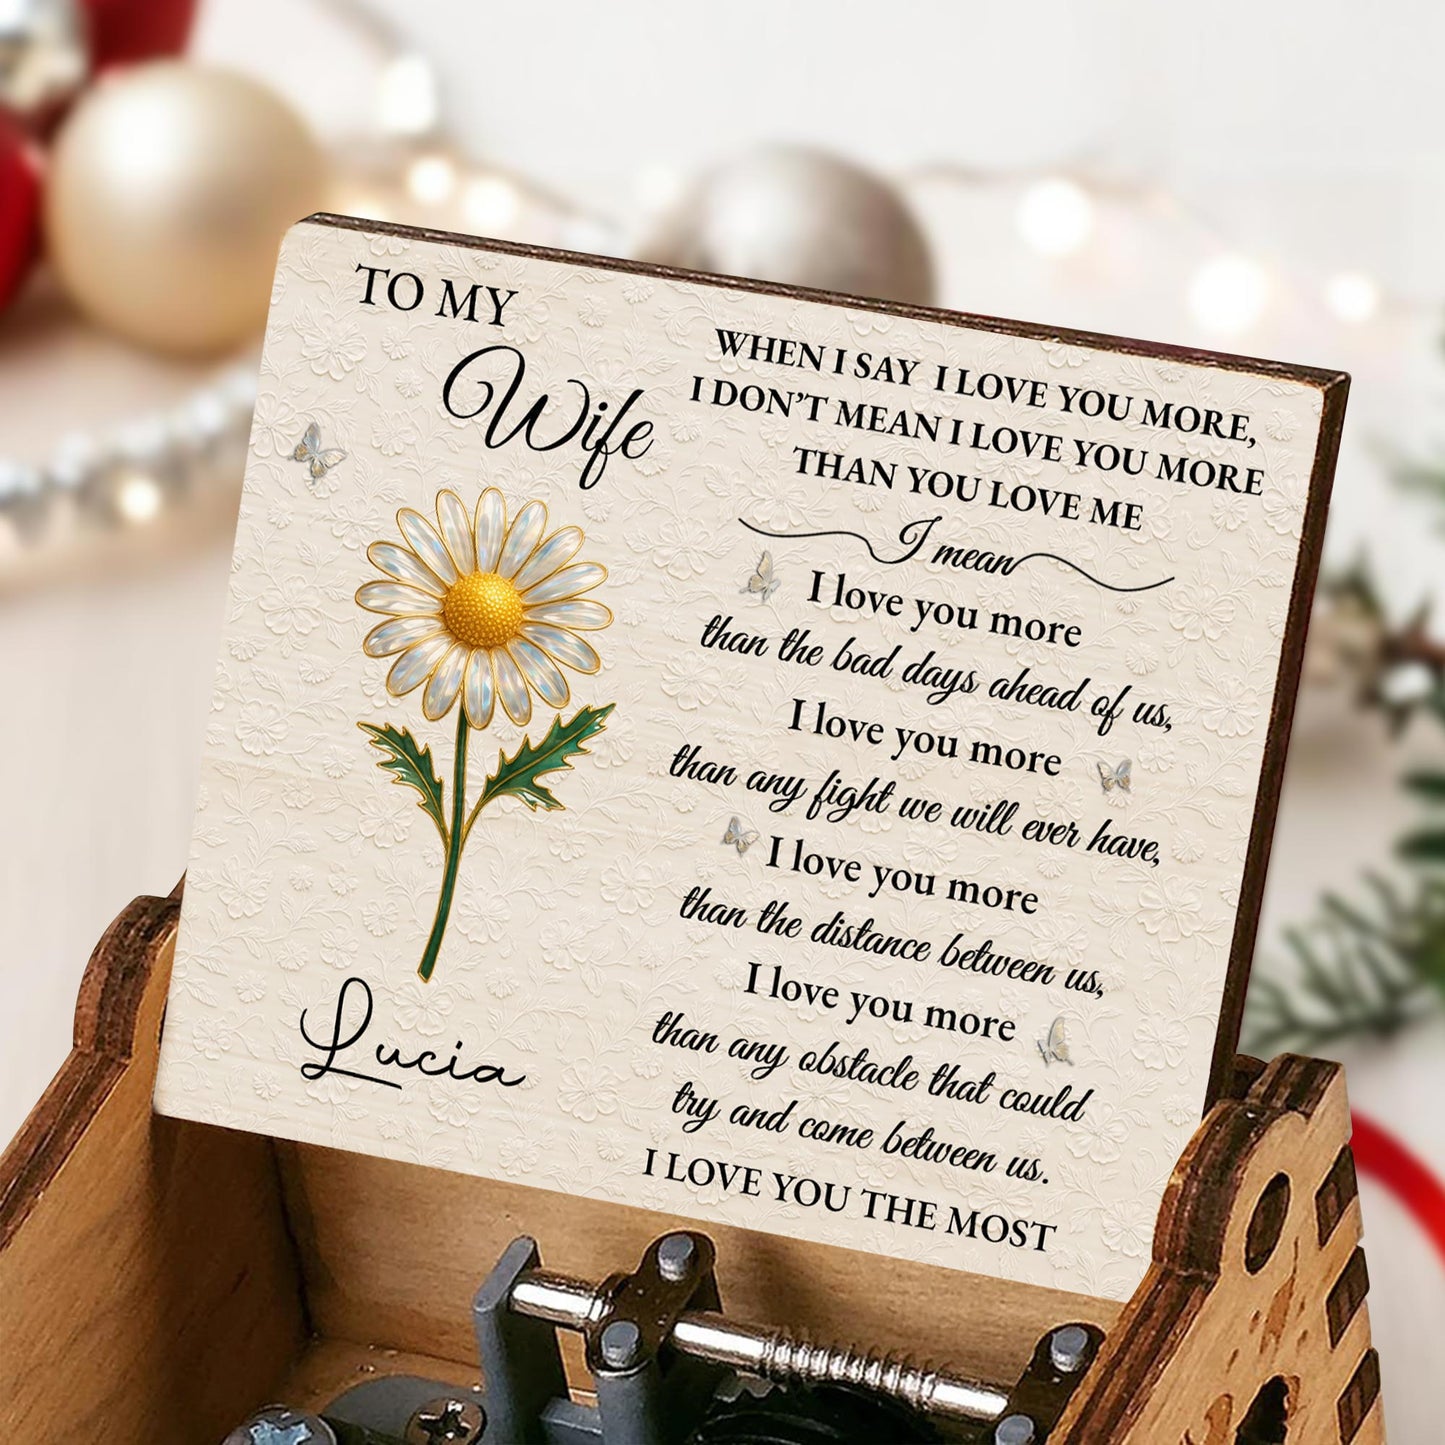 TO MY
Wife
Lucia
WHEN I SAY I LOVE YOU MORE,
I DON'T MEAN I LOVE YOU MORE
THAN YOU LOVE ME
I mean
I love you more
than the bad days ahead of us,
I love you more
than any fight we will ever have,
I love you more
than the distance between us,
I love you more
than any obstacle that could
try and come between us.
I LOVE YOU THE MOST